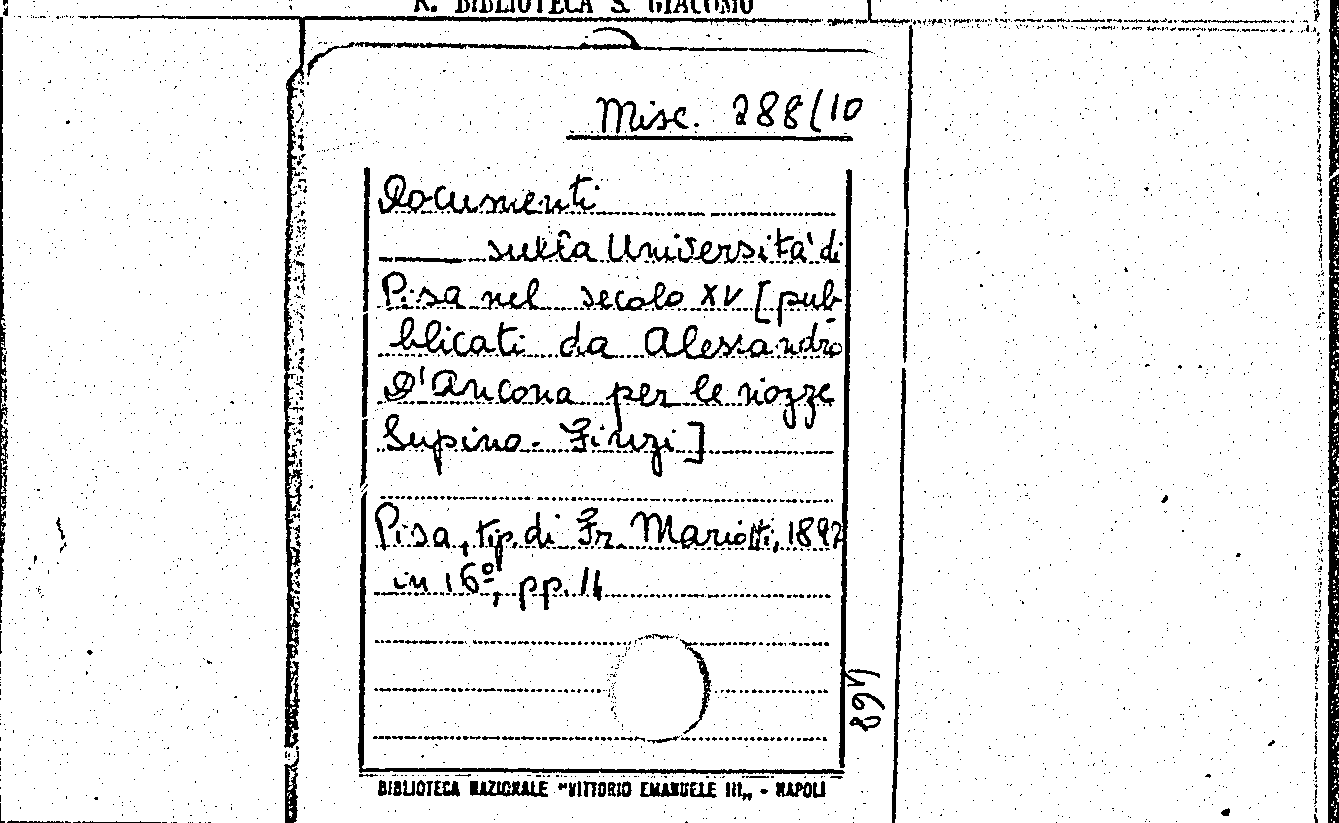 R. BIBLIOTECA S. GIACOMO
Misc. 288/10
Documenti
____ sulla Università di
Pisa nel secolo XV [pub-
blicati da Alessandro
D'Ancona per le nozze
Supino-Finzi]
Pisa, tip. di Fr. Mariotti, 1897
in 16º, pp. 14
BIBLIOTECA NAZIONALE "VITTORIO EMANUELE III" - NAPOLI